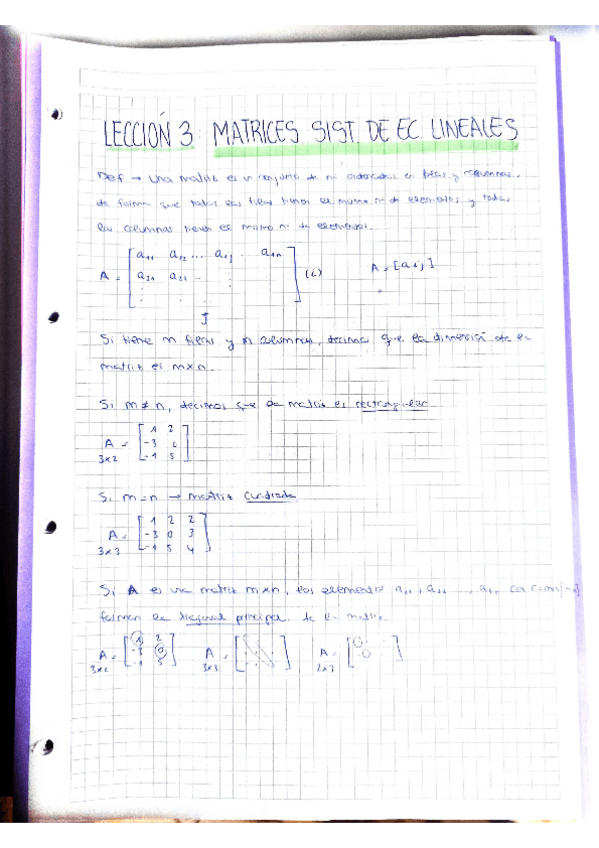 LECCIÓN 3 MATRICES SIST. DE EC. LINEALES
Def → Una matriz es un conjunto de nº ordenados en filas y columnas,
de forma que todas las filas tienen el mismo nº de elementos y todas
las columnas tienen el mismo nº de elementos.
A = [ a11 a12 ... a1j . a1n
a21 a22 ... ] (i) A = [aij]
J
Si tiene m filas y n columnas, decimos que la dimensión de la
matriz es m×n.
Si m ≠ n, decimos que la matriz es rectangular
A 3×2 = [ 1 2
-3 0
-1 5 ]
Si m = n → matriz cuadrada
A 3×3 = [ 1 2 2
-3 0 3
-1 5 4 ]
Si A es una matriz m×n, los elementos a11, a22 ..., arr con r = min
forman la diagonal principal de la matriz.
A 3×2 = [ 1 2
-3 0
-1 5 ] A 3×3 = [ ] A 2×3 = [ ]